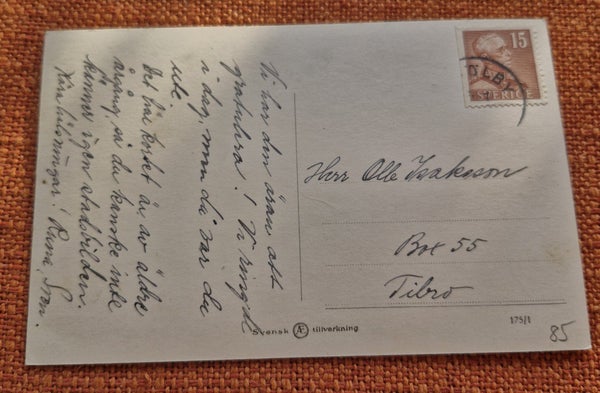 Vi har den äran att
gratulera! Vi ringde
i dag, men du var du
ute.
Det här kortet är av äldre
årgång, så du kanske inte
känner igen stadsbilden.
Kära hälsningar / Rune, Sven.
15
SVERIGE
Herr Olle Isaksson
Box 55
Tibro
Svensk Æ tillverkning
175/1
85